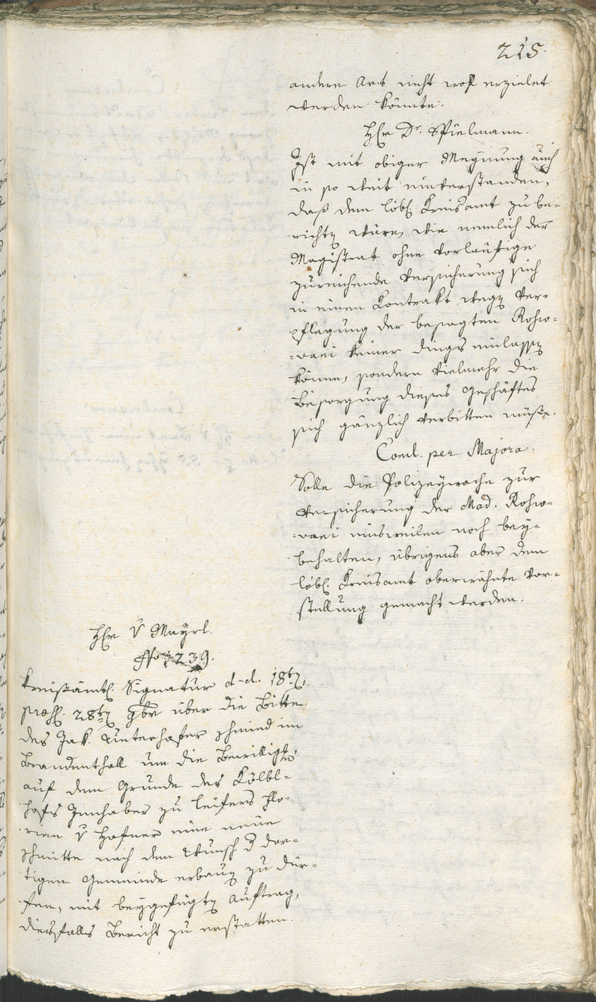 215.
andere Art nicht wohl erzielet
werden könnte.
Hr Dr. Spielmann.
Ist mit obiger Meynung auch
in so weit einverstanden,
daß dem löbl. Kreisamt zu be-
richten wäre, wie nemlich der
Magistrat ohne vorläufige
zureichende Versicherung sich
in einen Kontrakt wegen Ver-
pflegung der besagten
keiner dings einlassen
könne, sondern vielmehr die
Besorgung dieses Geschäftes
sich gänzlich verbitten müsse.
Concl. per Majora.
Solle die Polizeywache zur
Versicherung der Mad.
einsweilen noch bey-
behalten, übrigens aber dem
löbl. Kreisamt oberwähnte Vor-
stellung gemacht werden.
Hr v Mayrl.
No 1239.
Kreisämtl. Signatur d.d. 18ten,
praes. 28ten über die Bitte
des Jak. Unterhofer Schmied im
Brandenthall um die Bewilligg
auf dem Grunde des Kölbl-
hofs Innhaber zu Leifers Flo-
rian v Hofner eine neue
Schmitte nach dem Wunsch d dor-
tigen Gemeinde erbauen zu dür-
fen, mit beygefügten Auftrag,
diesfalls Bericht zu erstatten.